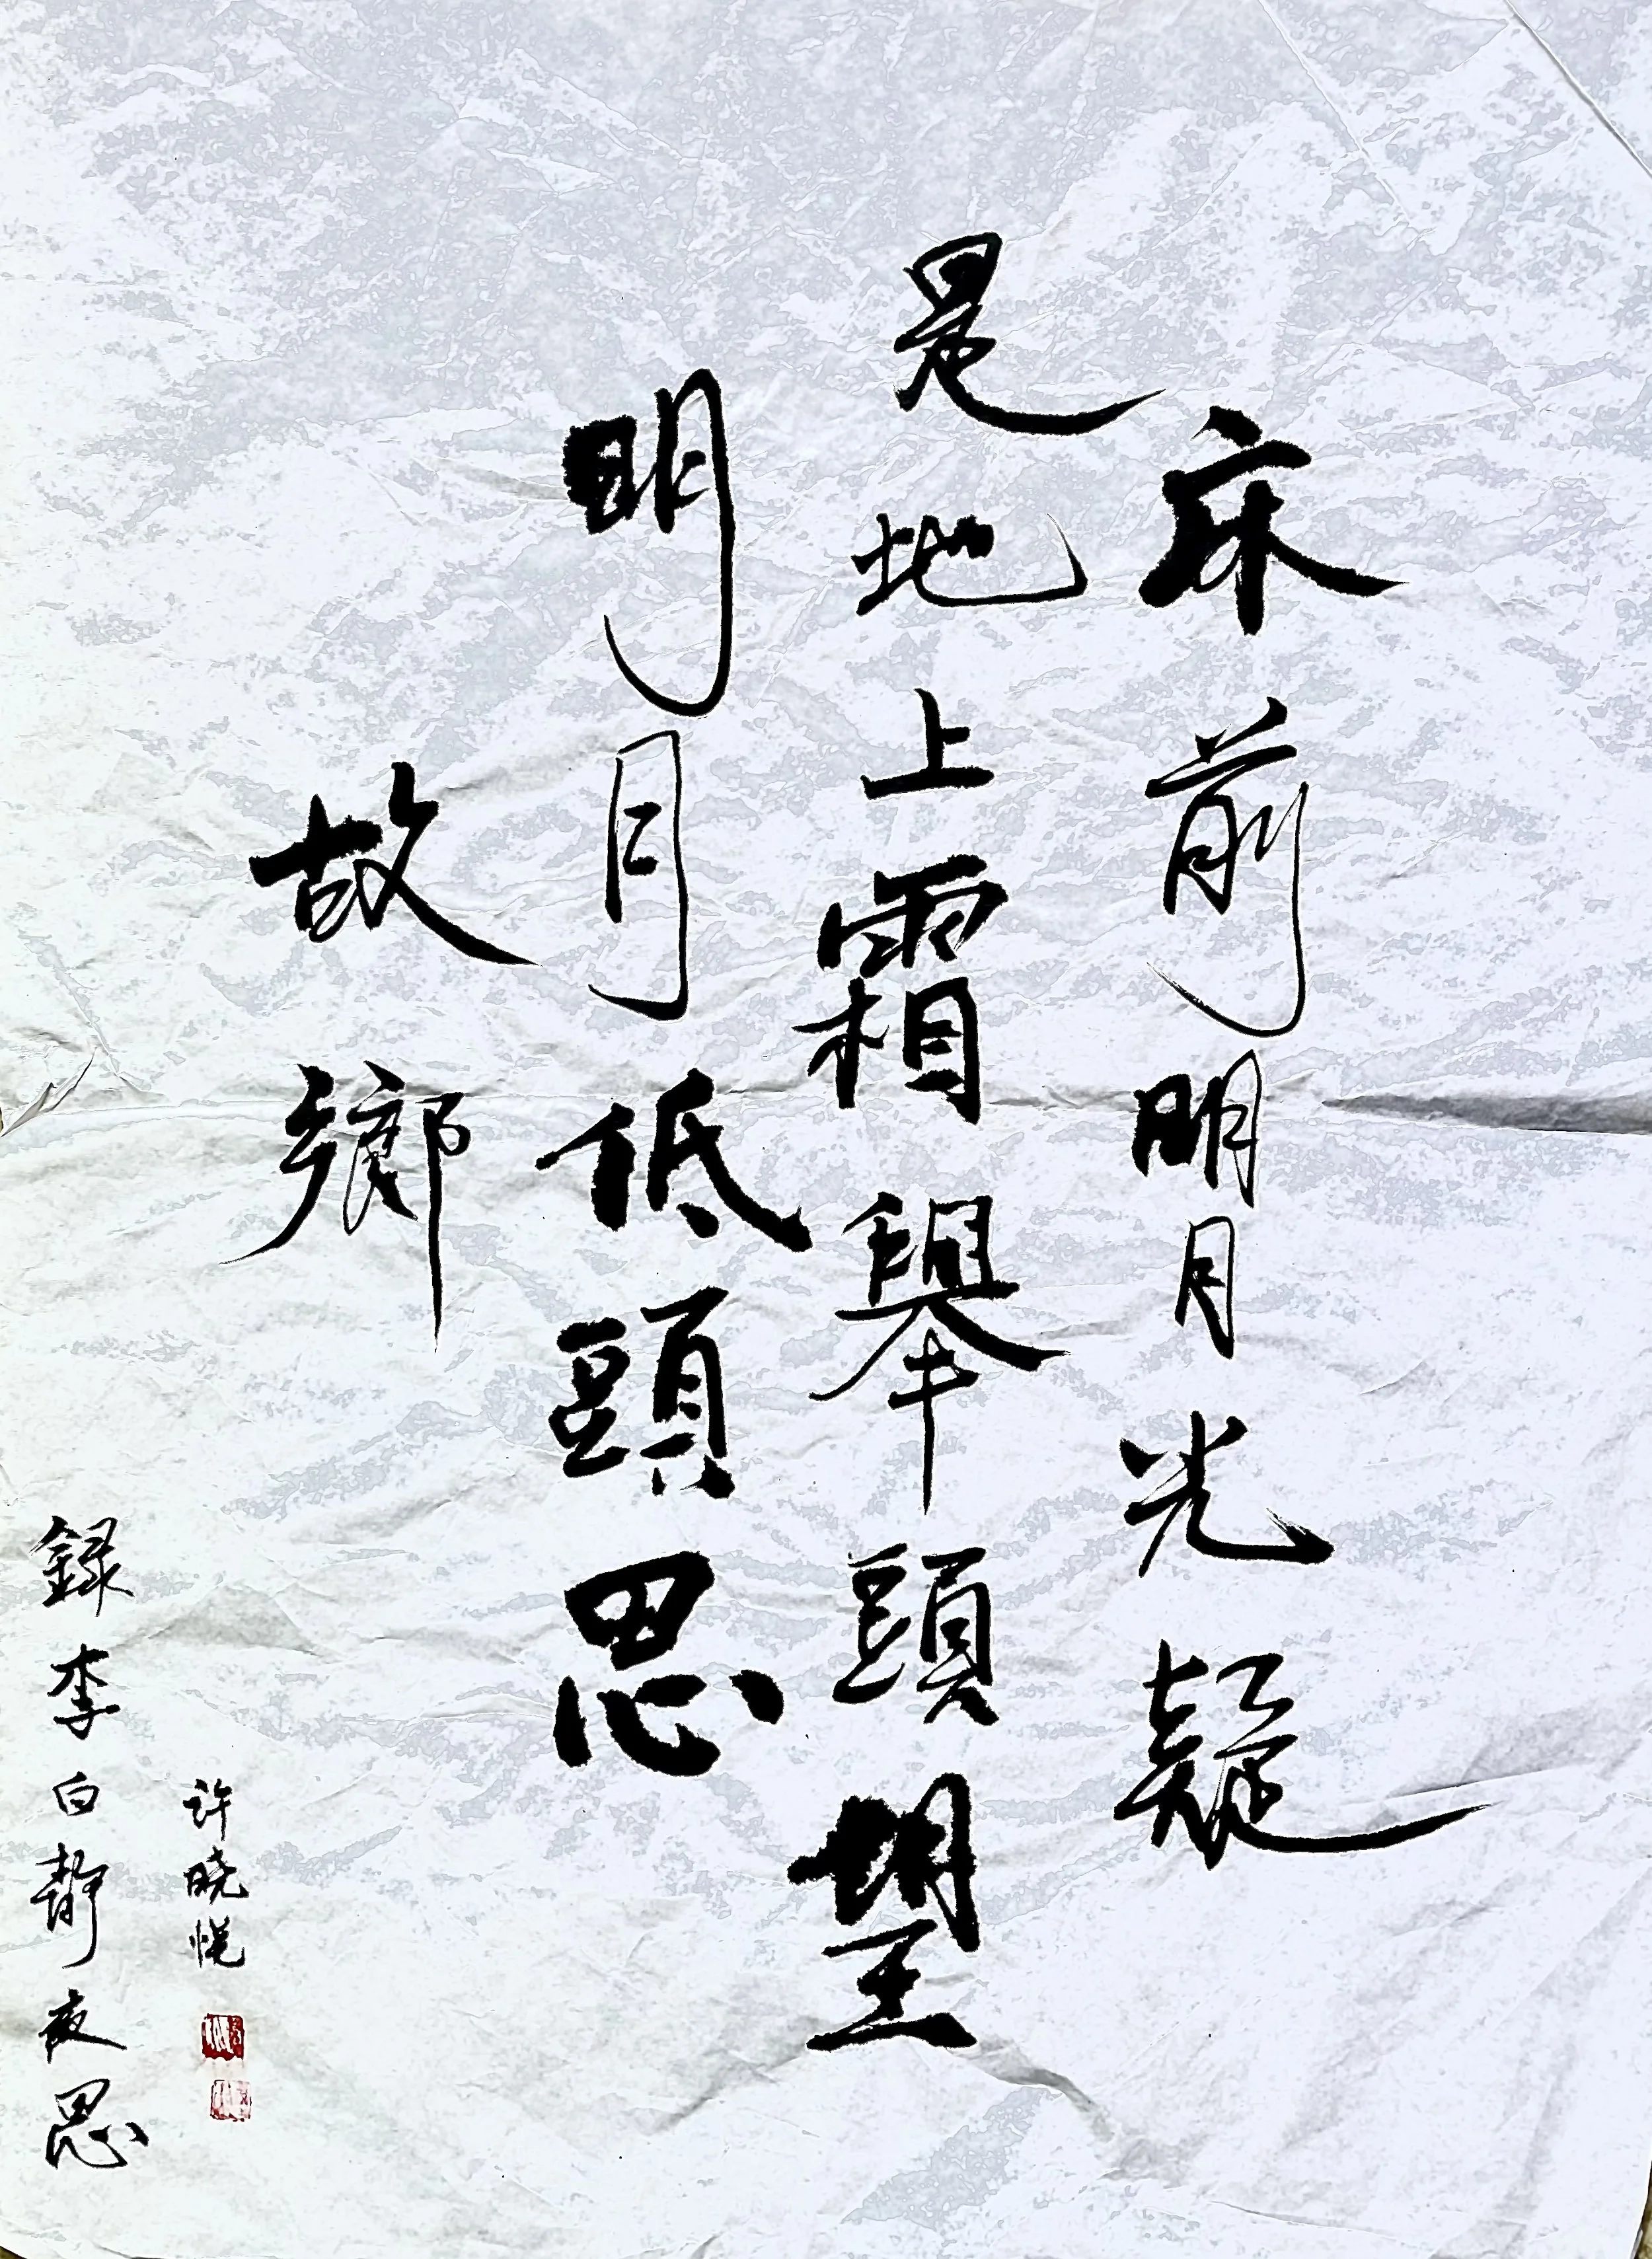 床前明月光疑
是地上霜舉頭望
明月低頭思
故鄉
許曉悅
録李白靜夜思